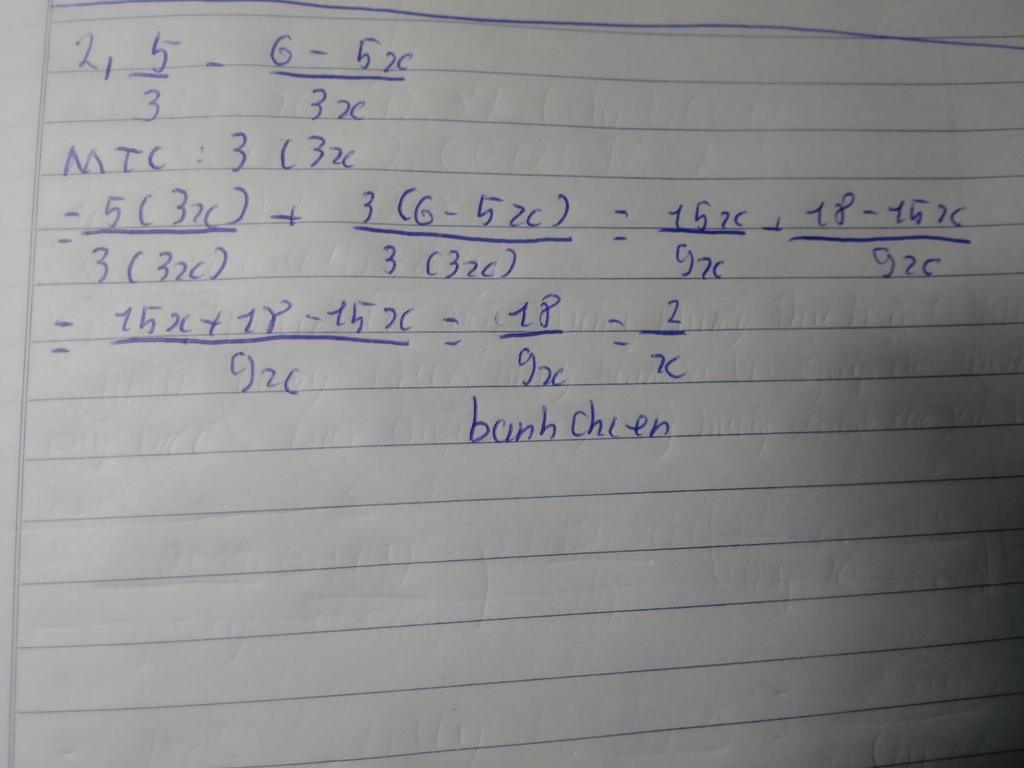 2, 5/3 - (6 - 5x)/(3x)
MTC : 3 (3x
= 5(3x)/3(3x) + 3(6-5x)/3(3x) = 15x/9x + (18-15x)/9x
= (15x+18-15x)/9x = 18/9x = 2/x
banhchien